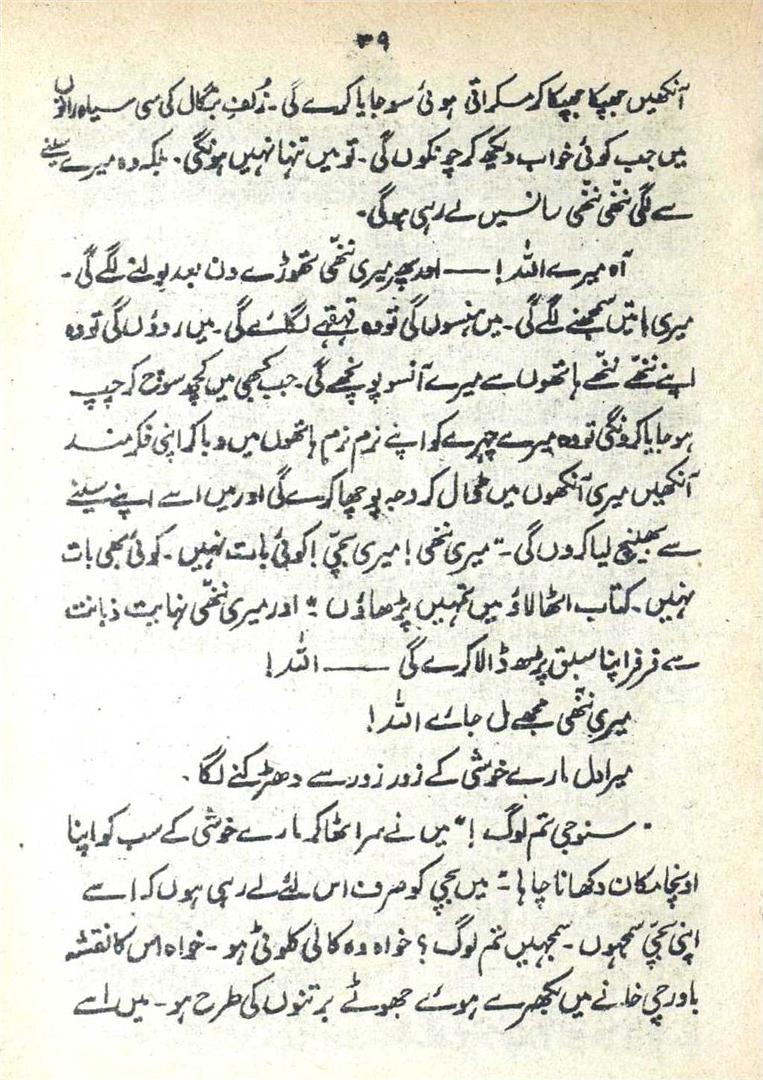 ۳۹
آنکھیں جھپکا جھپکا کر مسکراتی ہوئی سو جایا کرے گی۔ زُلفِ بنگال کی سی سیاہ راتوں
میں جب کوئی خواب دیکھ کر چونکوں گی۔ تو میں تنہا نہیں ہونگی۔ بلکہ وہ میرے سینے
سے لگی ننھّی ننھّی سانسیں لے رہی ہوگی۔
آہ میرے اللہ! —— اور پھر میری ننھّی تھوڑے دن بعد بولنے لگے گی۔
میری باتیں سمجھنے لگے گی۔ میں ہنسوں گی تو وہ قہقہے لگائے گی۔ میں روؤں گی تو وہ
اپنے ننھّے ننھّے ہاتھوں سے میرے آنسو پونچھے گی۔ جب کبھی میں کچھ سوچ کر چپ
ہو جایا کرونگی تو وہ میرے چہرے کو اپنے نرم نرم ہاتھوں میں دبا کر اپنی فکرمند
آنکھیں میری آنکھوں میں ڈال کر وجہ پوچھا کرے گی اور میں اسے اپنے سینے
سے بھینچ لیا کروں گی۔ "میری ننھی! میری بچّی! کوئی بات نہیں۔ کوئی بھی بات
نہیں۔ کتاب اٹھا لاؤ میں تمہیں پڑھاؤں"۔ اور میری ننھّی نہایت ذہانت
سے فرفر اپنا سبق پڑھ ڈالا کرے گی —— اللہ!
میری ننھّی مجھے مل جائے اللہ!
میرا دل مارے خوشی کے زور زور سے دھڑکنے لگا۔
"سنو جی تم لوگ!" میں نے سر اٹھا کر مارے خوشی کے سب کو اپنا
اونچا مکان دکھانا چاہا۔ "میں بچی کو صرف اس لئے لے رہی ہوں کہ اِسے
اپنی بچّی سمجھوں۔ سمجھیں تم لوگ؟ خواہ وہ کالی کلوٹی ہو۔ خواہ اس کا نقشہ
باورچی خانے میں بکھرے ہوئے جھوٹے برتنوں کی طرح ہو۔ میں اسے